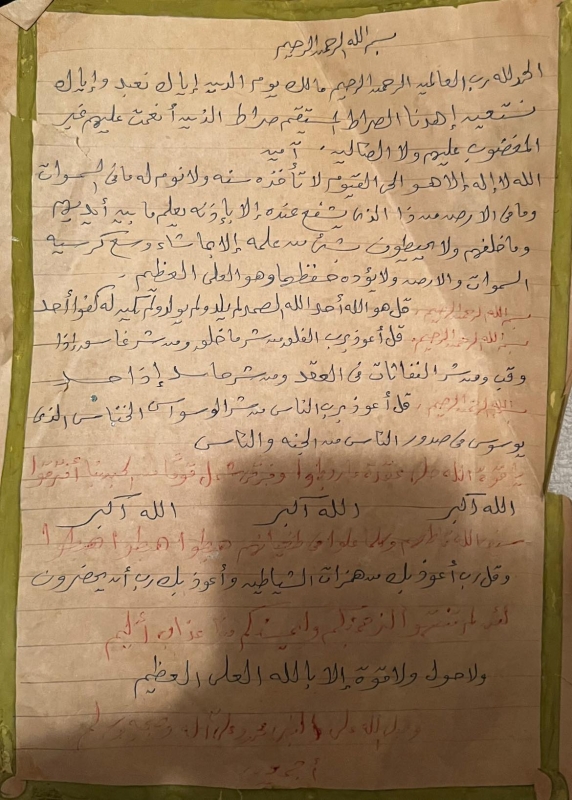 بسم الله الرحمن الرحيم
الحمد لله رب العالمين الرحمن الرحيم مالك يوم الدين إياك نعبد وإياك
نستعين إهدنا الصراط المستقيم صراط الذين أنعمت عليهم غير
المغضوب عليهم ولا الضالين . آمين
الله لا إله إلا هو الحي القيوم لا تأخذه سنة ولا نوم له ما في السموات
وما في الارض من ذا الذي يشفع عنده إلا بإذنه يعلم ما بين أيديهم
وما خلفهم ولا يحيطون بشئ من علمه إلا بما شاء وسع كرسيه
السموات والارض ولا يؤده حفظهما وهو العلي العظيم .
بسم الله الرحمن الرحيم . قل هو الله أحد الله الصمد لم يلد ولم يولد ولم يكن له كفوا أحد
بسم الله الرحمن الرحيم . قل أعوذ برب الفلق من شر ما خلق ومن شر غاسق إذا
وقب ومن شر النفاثات في العقد ومن شر حاسد إذا حسد
بسم الله الرحمن الرحيم . قل أعوذ برب الناس من شر الوسواس الخناس الذي
يوسوس في صدور الناس من الجنه والناس
الله أكبر الله أكبر الله أكبر
اهبطوا اهبطوا
وقل رب أعوذ بك من همزات الشياطين وأعوذ بك رب أن يحضرون
لئن لم تنتهوا لنرجمنكم وليمسنكم منا عذاب أليم
ولا حول ولا قوة إلا بالله العلي العظيم
وصلى الله على محمد وعلى آله وصحبه وسلم
أجمعين